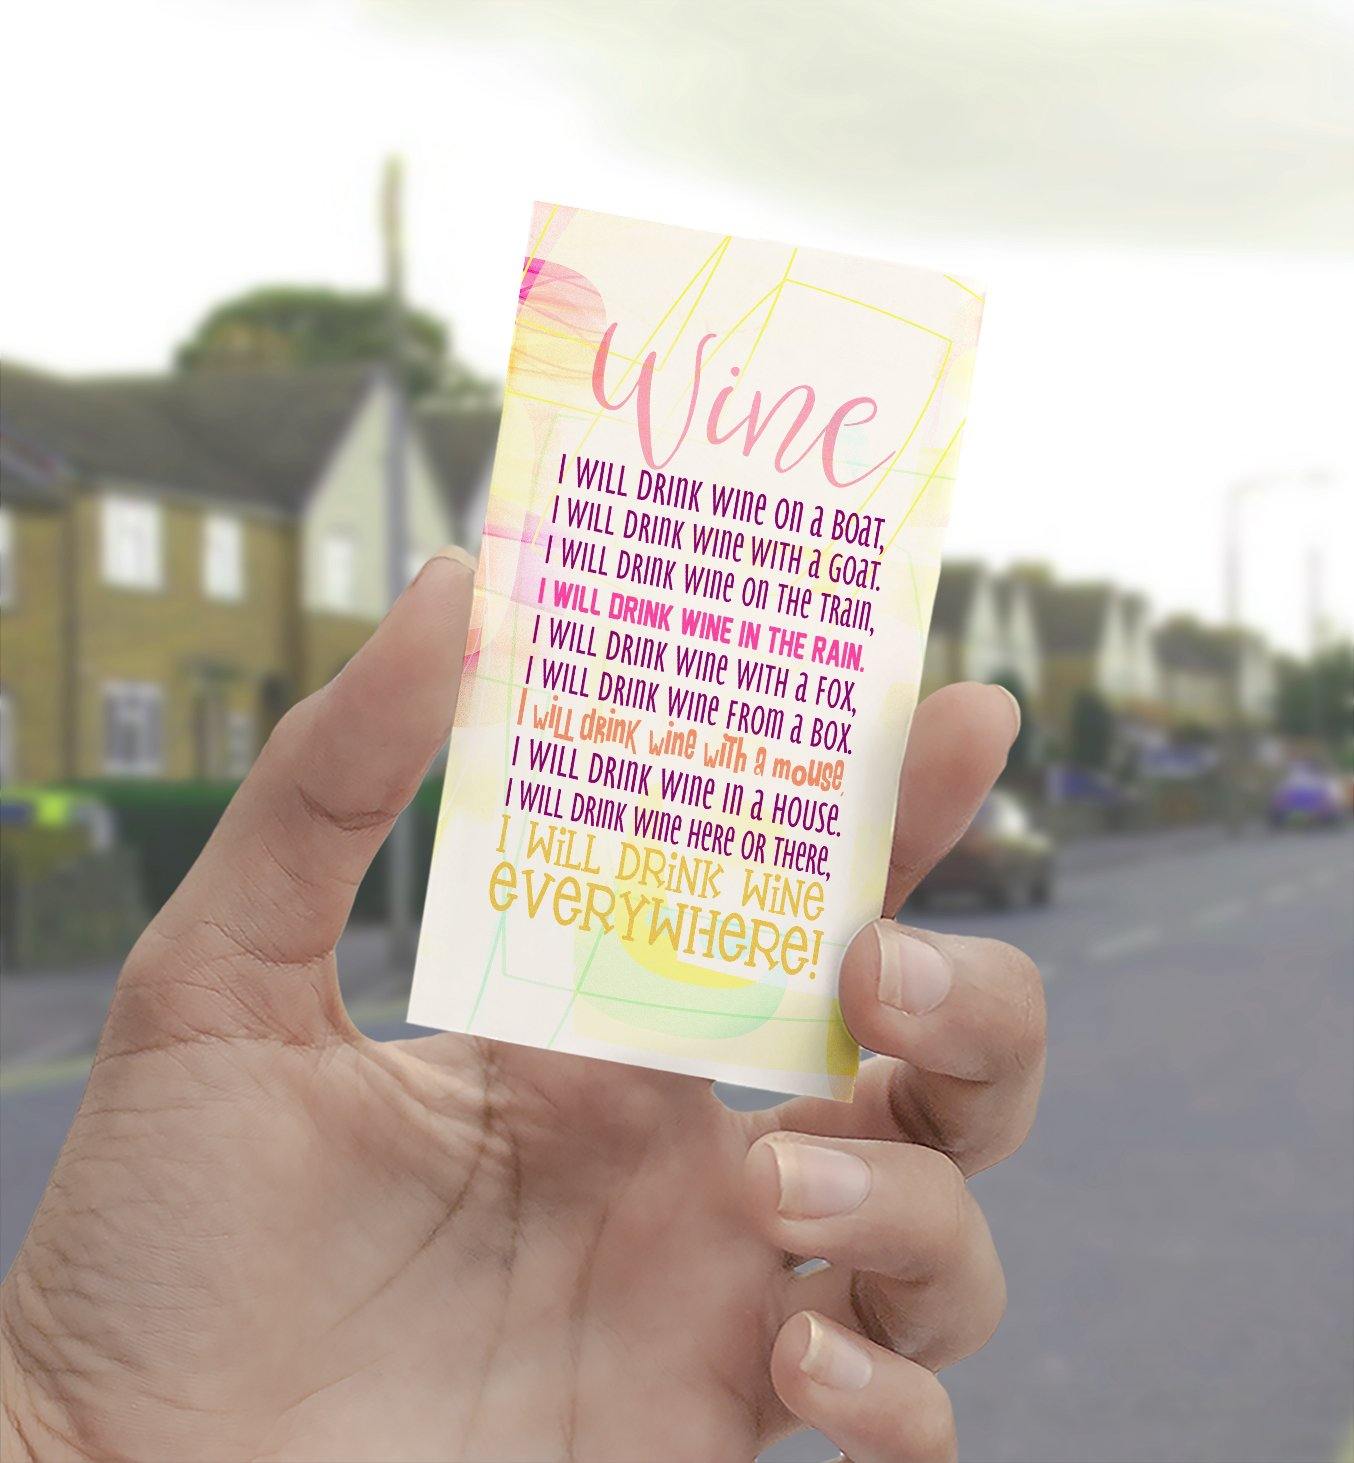 Wine
I WILL DRINK WINE ON a BOAT,
I WILL DRINK WINE WITH a GOAT.
I WILL DRINK WINE ON THE TRAIN,
I WILL DRINK WINE IN THE RAIN.
I WILL DRINK WINE WITH a FOX,
I WILL DRINK WINE FROM a BOX.
I will drink wine with a mouse,
I WILL DRINK WINE IN a HOUSE.
I WILL DRINK WINE HERE OR THERE,
I WILL DRINK WINE
EVERYWHERE!